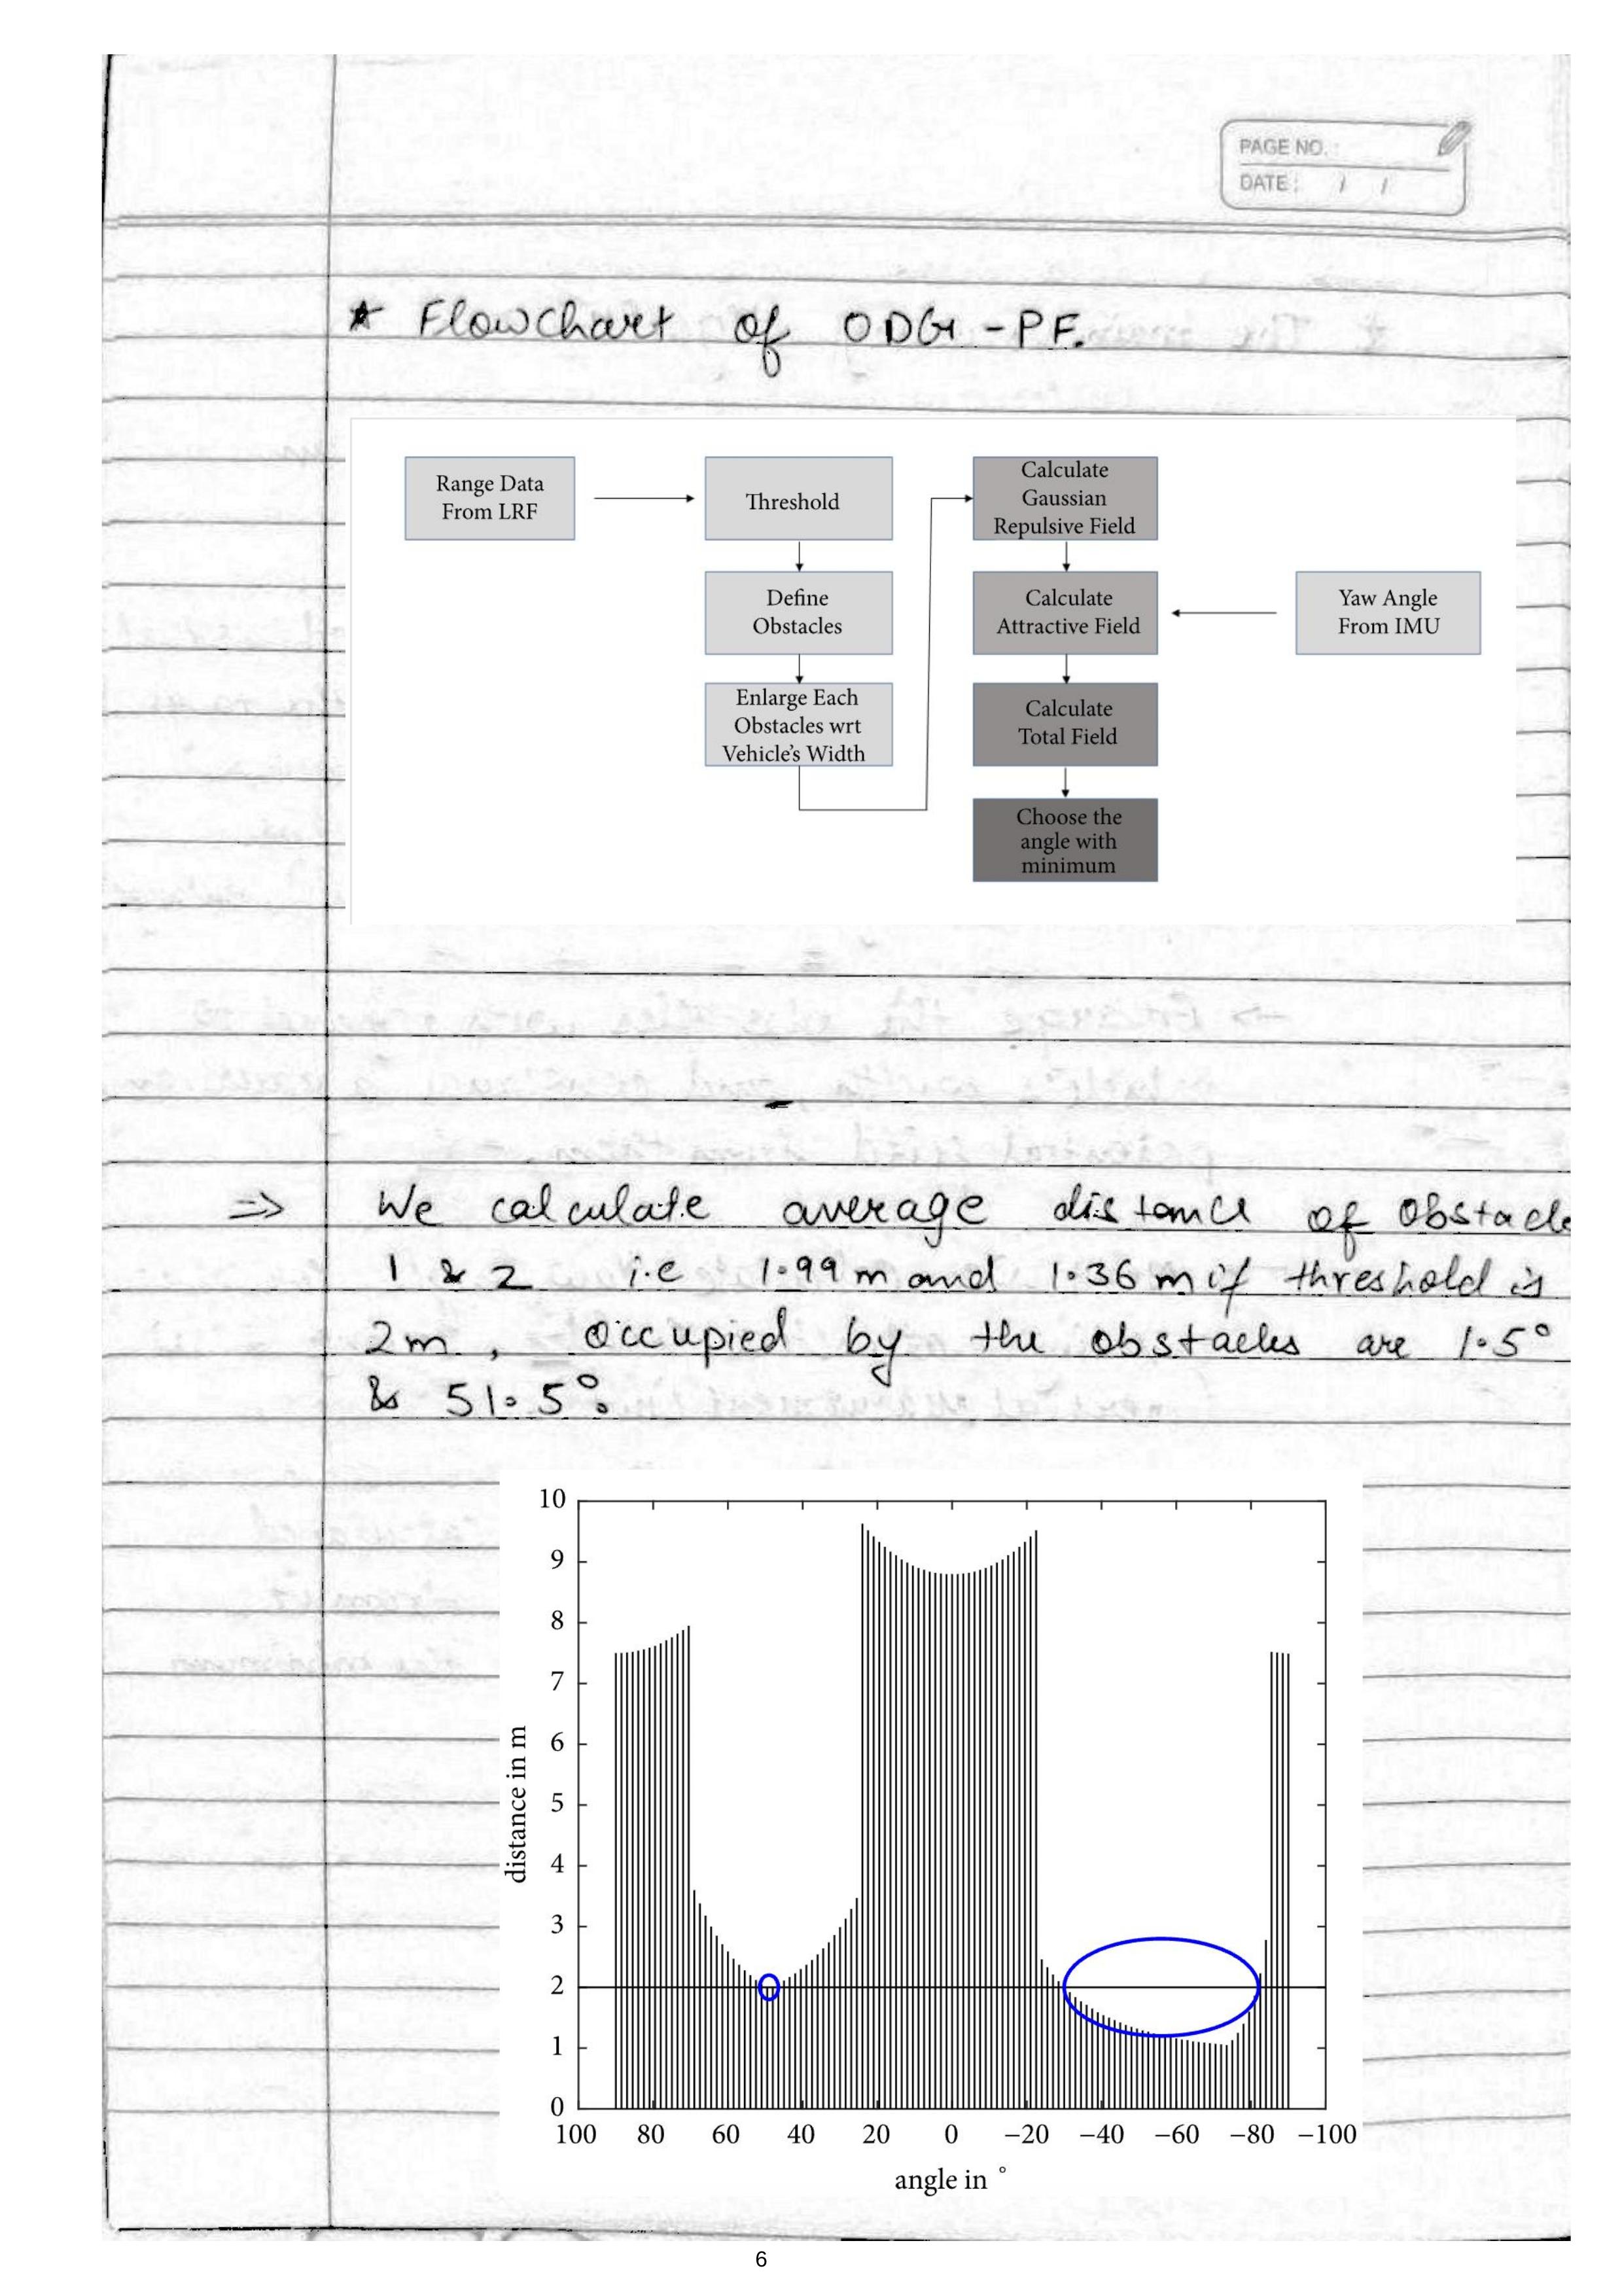 PAGE NO. :
DATE : / /
* Flowchart of ODG-PF.
Range Data
From LRF
Threshold
Define
Obstacles
Enlarge Each
Obstacles wrt
Vehicle's Width
Calculate
Gaussian
Repulsive Field
Calculate
Attractive Field
Yaw Angle
From IMU
Calculate
Total Field
Choose the
angle with
minimum
⇒ We calculate average distance of Obstacle
1 & 2 i.e 1.99 m and 1.36 m if threshold is
2m , occupied by the obstacles are 1.5°
& 51.5°.
10
9
8
7
6
5
4
3
2
1
0
distance in m
100 80 60 40 20 0 −20 −40 −60 −80 −100
angle in °
6